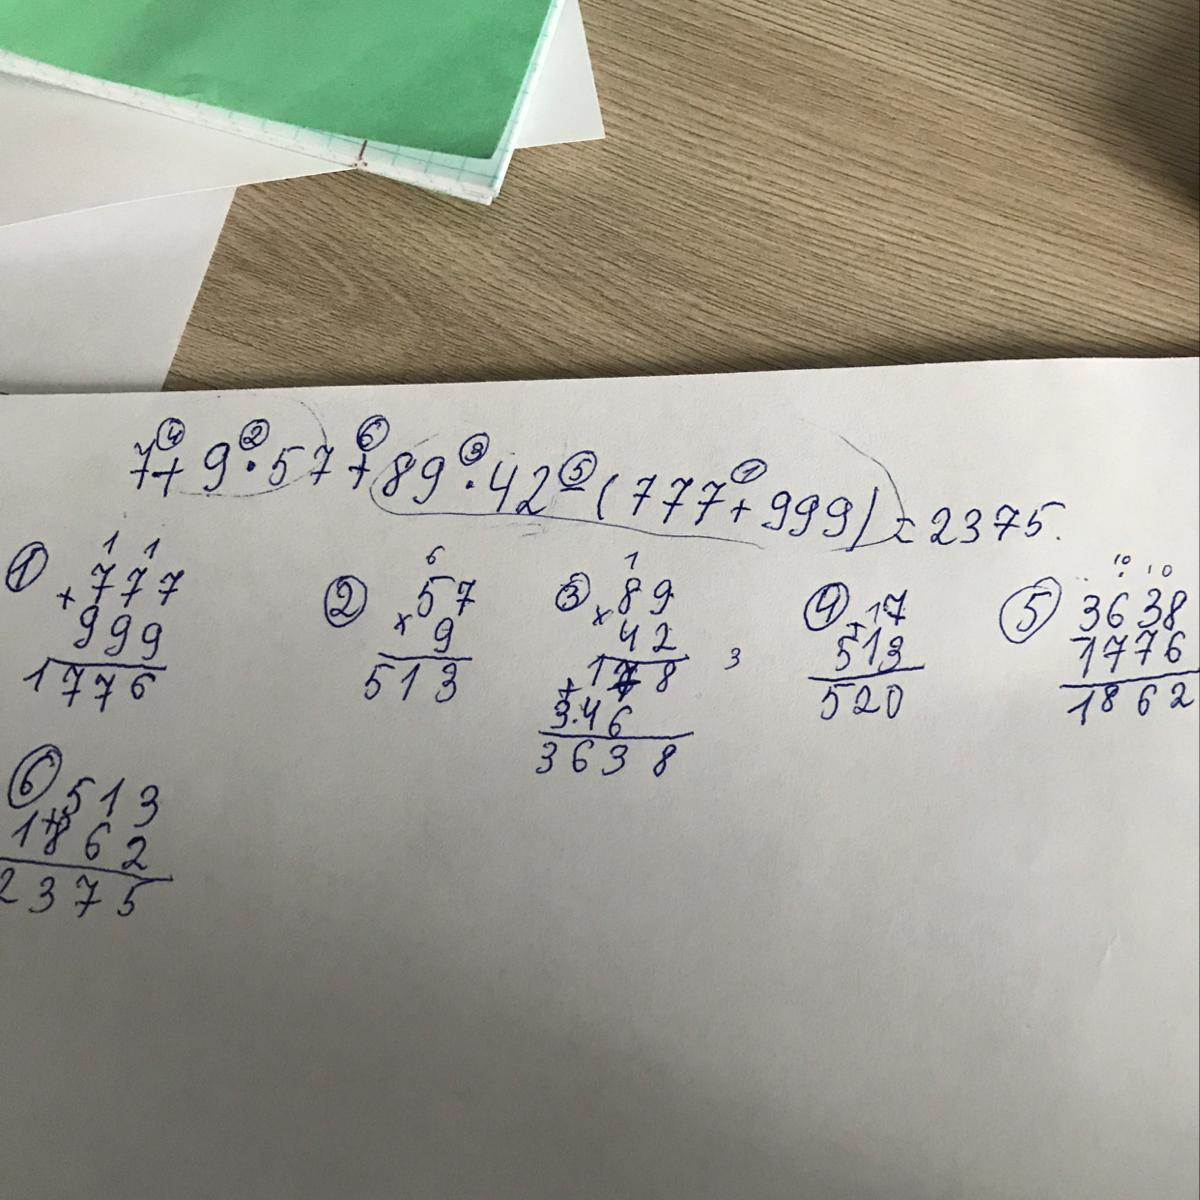 7+9·57+89·42-(777+999)=2375.
④ ② ⑥ ③ ⑤ ①
① 1 1
+777
999
1776
② 6
×57
9
513
③ 1
×89
42
178
+
3.46
3638
3
④ +17
513
520
⑤ 10 10
3638
1776
1862
⑥ 513
+
1862
2375